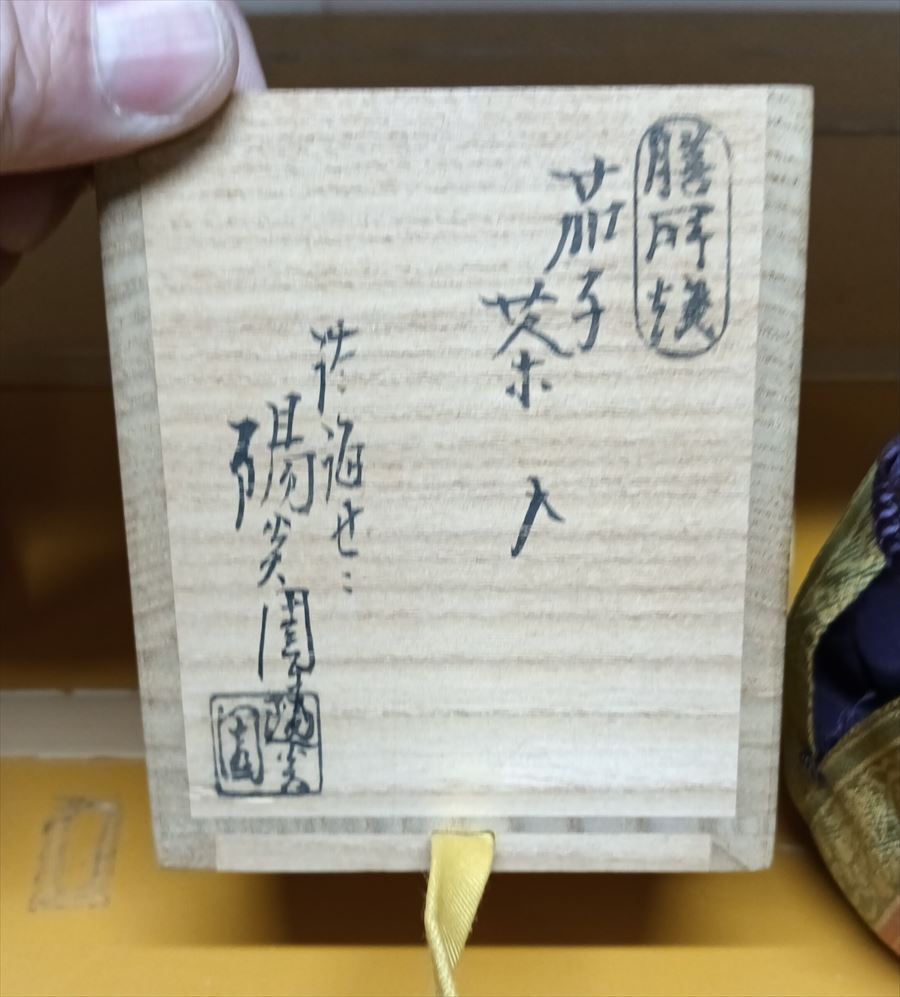 膳所焼
茄子
茶入
淡海せゝ
陽炎園
陽炎
園